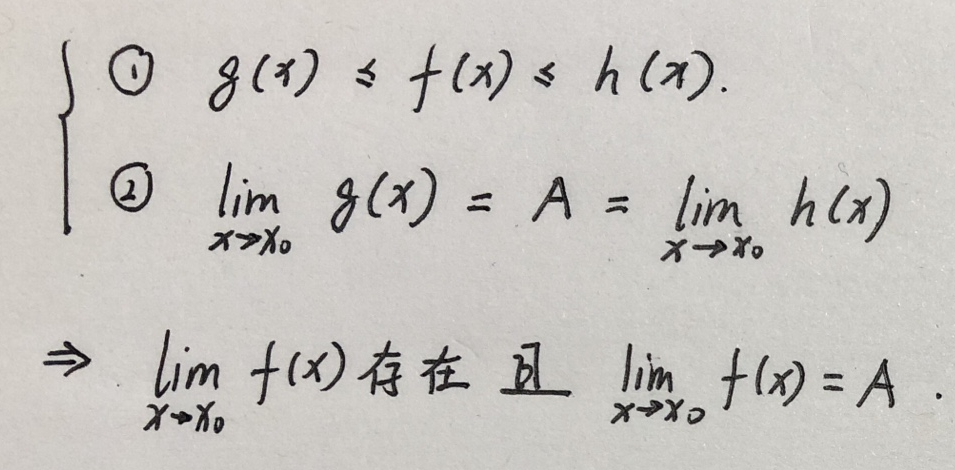 ① g(x) ≤ f(x) ≤ h(x).
② lim_{x→x₀} g(x) = A = lim_{x→x₀} h(x)
⇒ lim_{x→x₀} f(x) 存在且 lim_{x→x₀} f(x) = A .